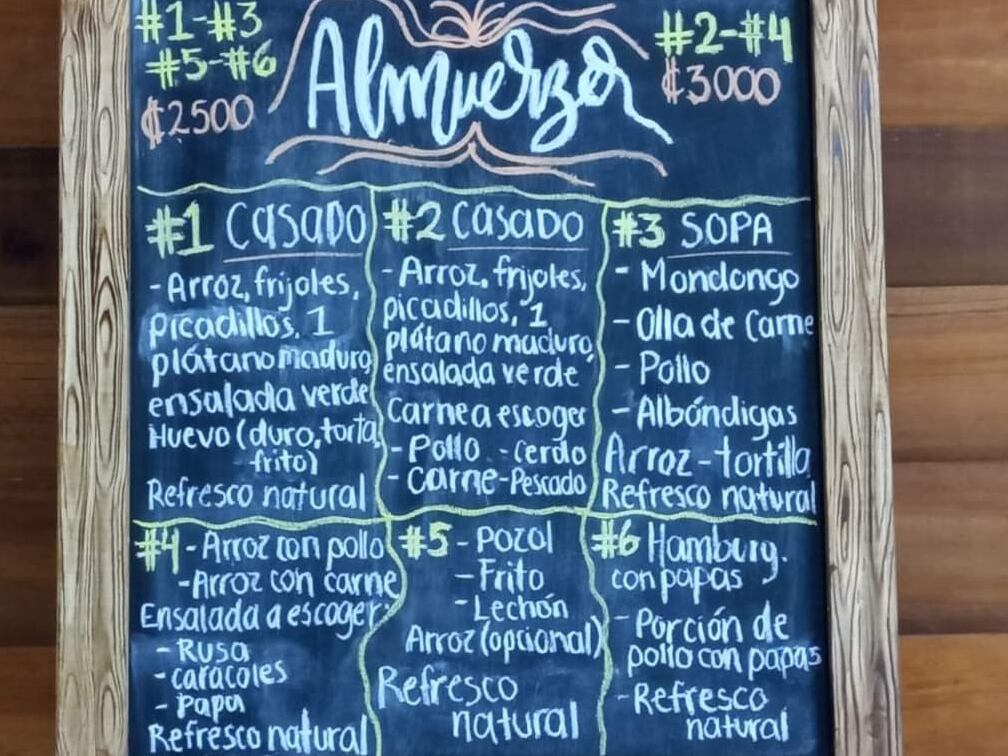 #1-#3
#5-#6
₡2500
Almuerzo
#2-#4
₡3000
#1 Casado
- Arroz, frijoles,
picadillos, 1
plátano maduro,
ensalada verde
Huevo (duro, torta,
frito)
Refresco natural
#2 Casado
- Arroz, frijoles,
picadillos, 1
plátano maduro,
ensalada verde
Carne a escoger
- Pollo - Cerdo
- Carne - Pescado
#3 SOPA
- Mondongo
- Olla de Carne
- Pollo
- Albóndigas
Arroz - tortilla
Refresco natural
#4 - Arroz con pollo
- Arroz con carne
Ensalada a escoger:
- Rusa
- caracoles
- Papa
Refresco natural
#5 - Pozol
- Frito
- Lechón
Arroz (opcional)
Refresco
natural
#6 Hamburg.
con papas
- Porción de
pollo con papas
- Refresco
natural